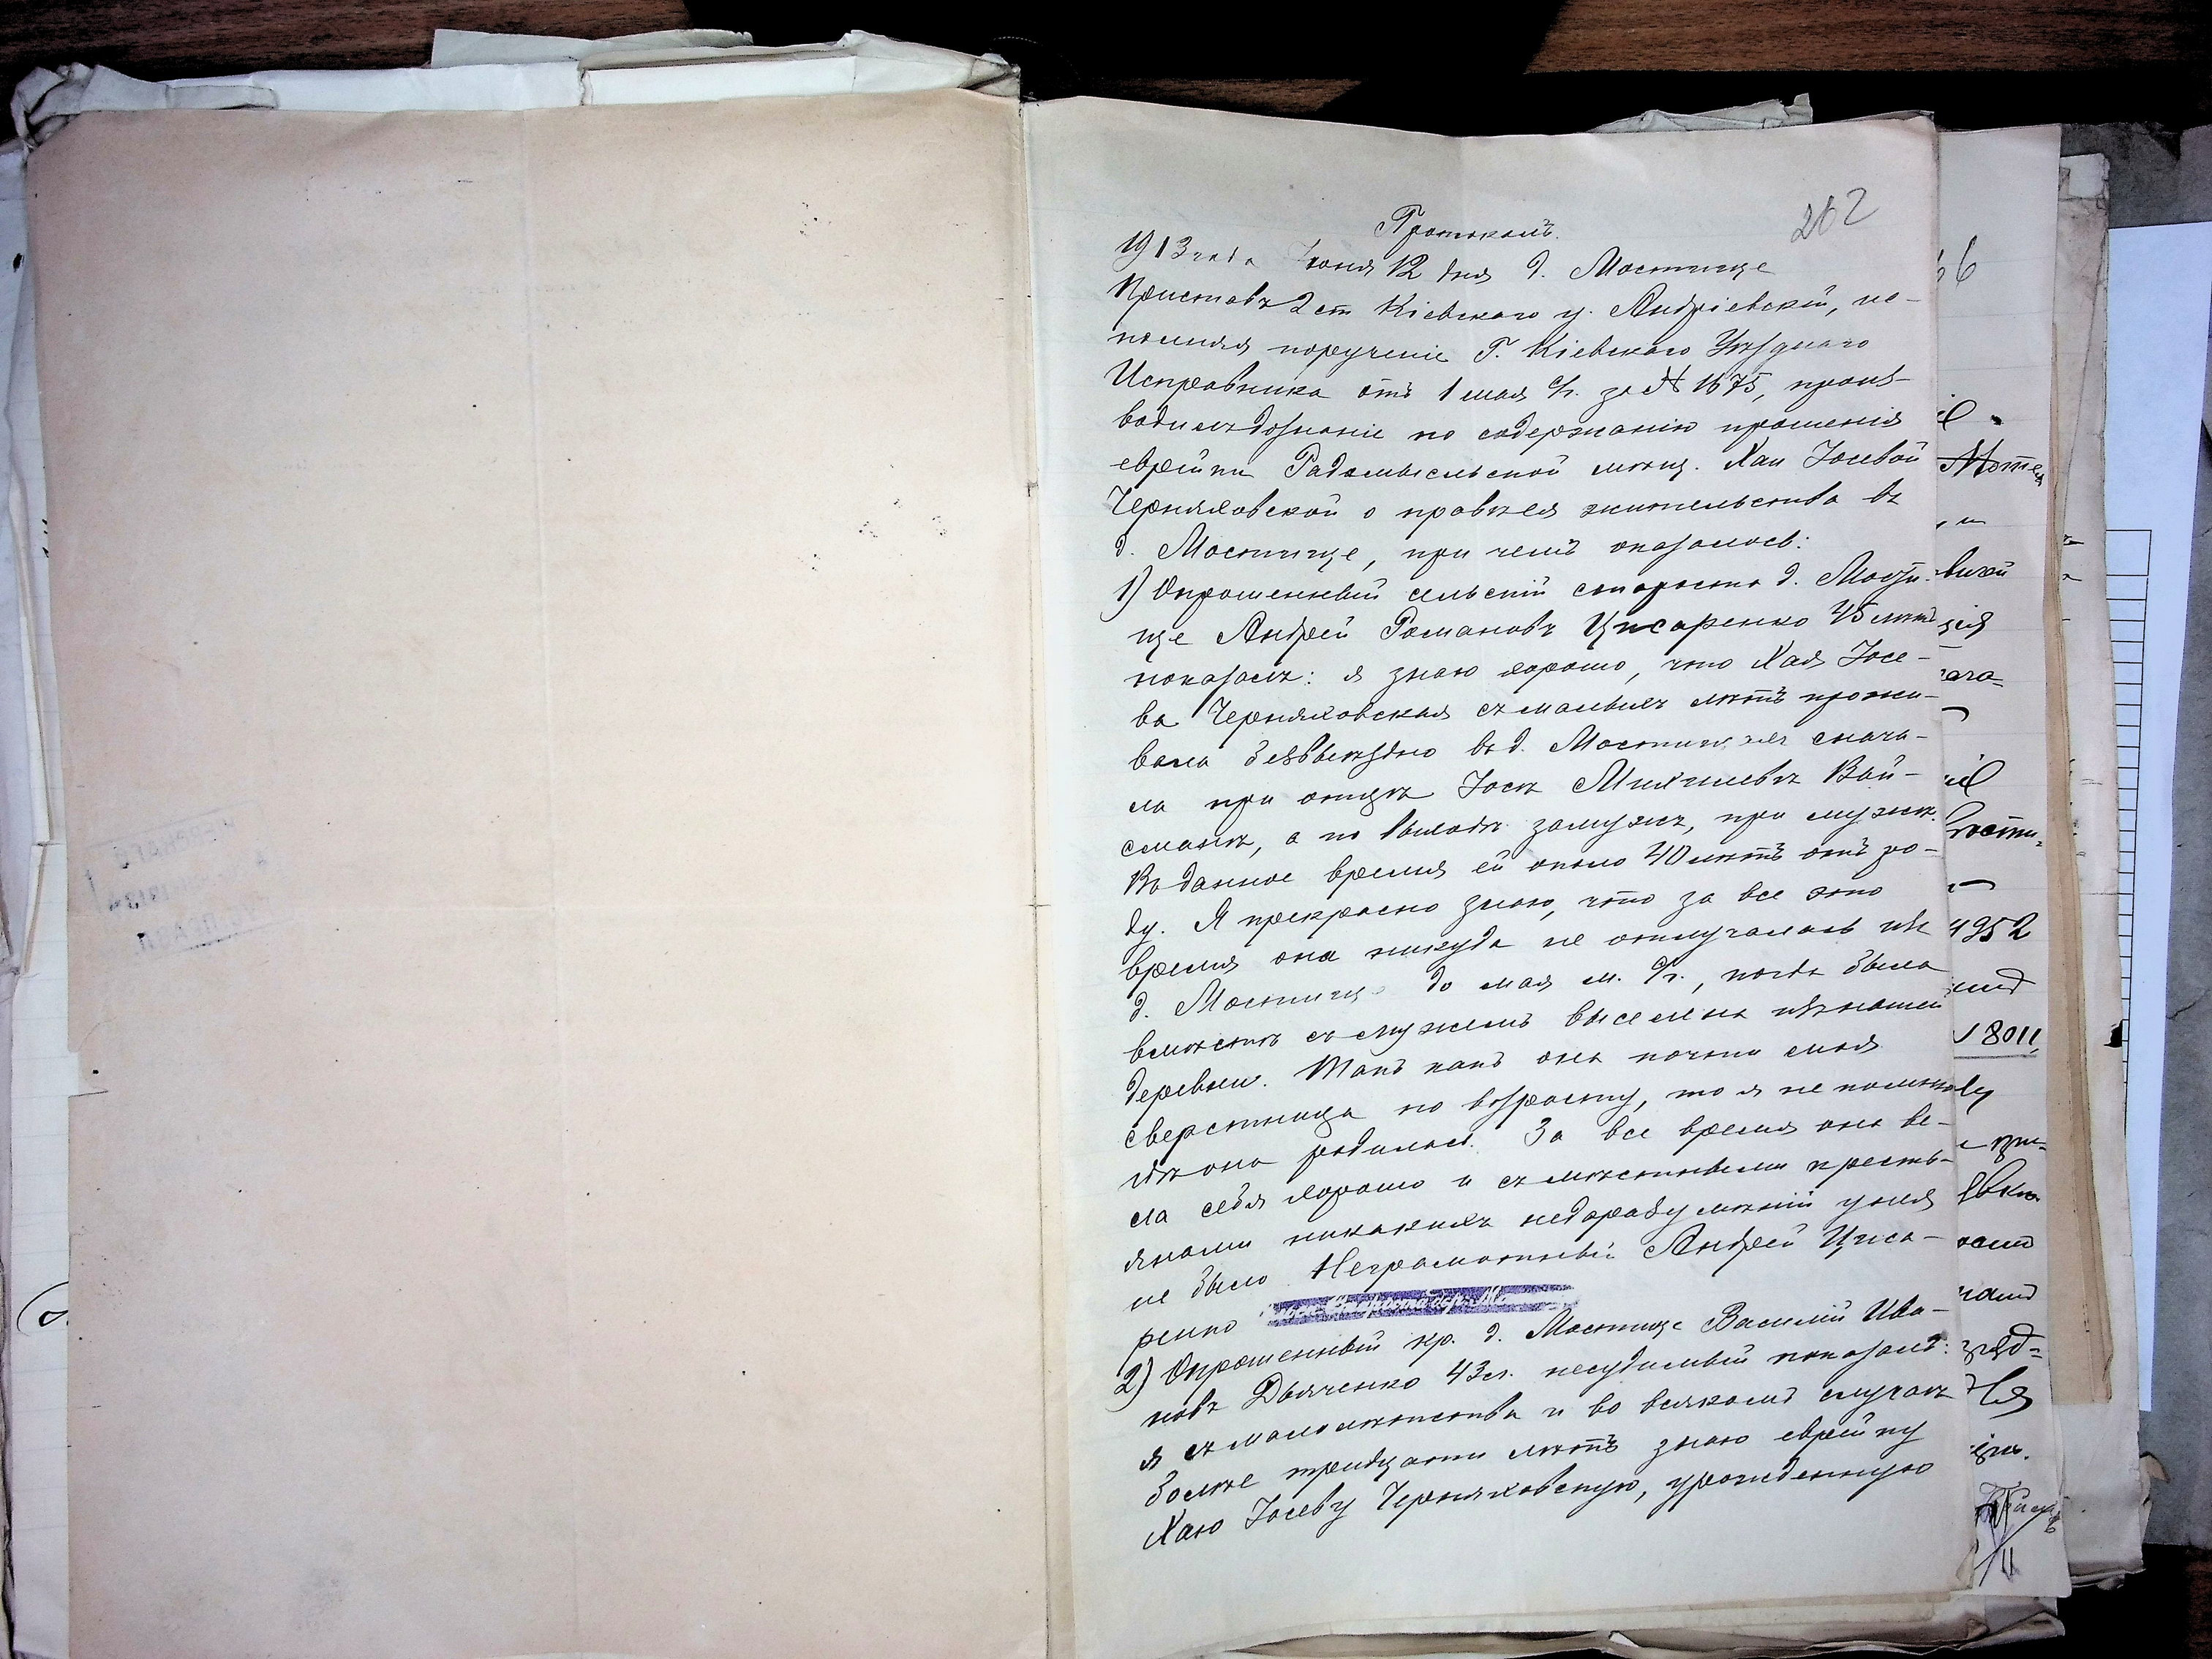 202
Протоколъ.
1913 года Іюня 12 дня д. Мостище
Приставъ 2 ст Кіевскаго у. Андріевскій, ис-
полняя порученіе Г. Кіевскаго Уѣзднаго
Исправника отъ 1 мая с/г. за № 1675, произ-
водилъ дознаніе по содержанію прошенія
еврейки Радомысльской мѣщ. Хаи Іосевой
Черняховской о правѣ ея жительства въ
д. Мостище, при чемъ оказалось:
1) Опрошенный сельскій староста д. Мости-
ще Андрей Романовъ Цисаренко 45 лѣтъ
показалъ: я знаю хорошо, что Хая Іосе-
ва Черняховская съ малыхъ лѣтъ прожи-
вала безвыѣздно въ д. Мостищѣ снача-
ла при отцѣ Іосѣ Михилевѣ Вай-
сманѣ, а по выходѣ замужъ, при мужѣ.
Въ данное время ей около 40 лѣтъ отъ ро-
ду. Я прекрасно знаю, что за все это
время она никуда не отлучалась изъ
д. Мостище до мая м. с/г., когда была
вмѣстѣ съ мужемъ выселена изъ нашей
деревни. Такъ какъ она почти моя
сверстница по возрасту, то я не помню
гдѣ она родилась. За все время она ве-
ла себя хорошо и съ мѣстными кресть-
янами никакихъ недоразумѣній у нея
не было. Неграмотный Андрей Циса-
ренко
2) Опрошенный кр. д. Мостище Василій Ива-
новъ Дьяченко 43 л. несудимый показалъ:
я съ малолѣтства и во всякомъ случаѣ
болѣе тридцати лѣтъ знаю еврейку
Хаю Іосеву Черняховскую, урожденную
4952
8011